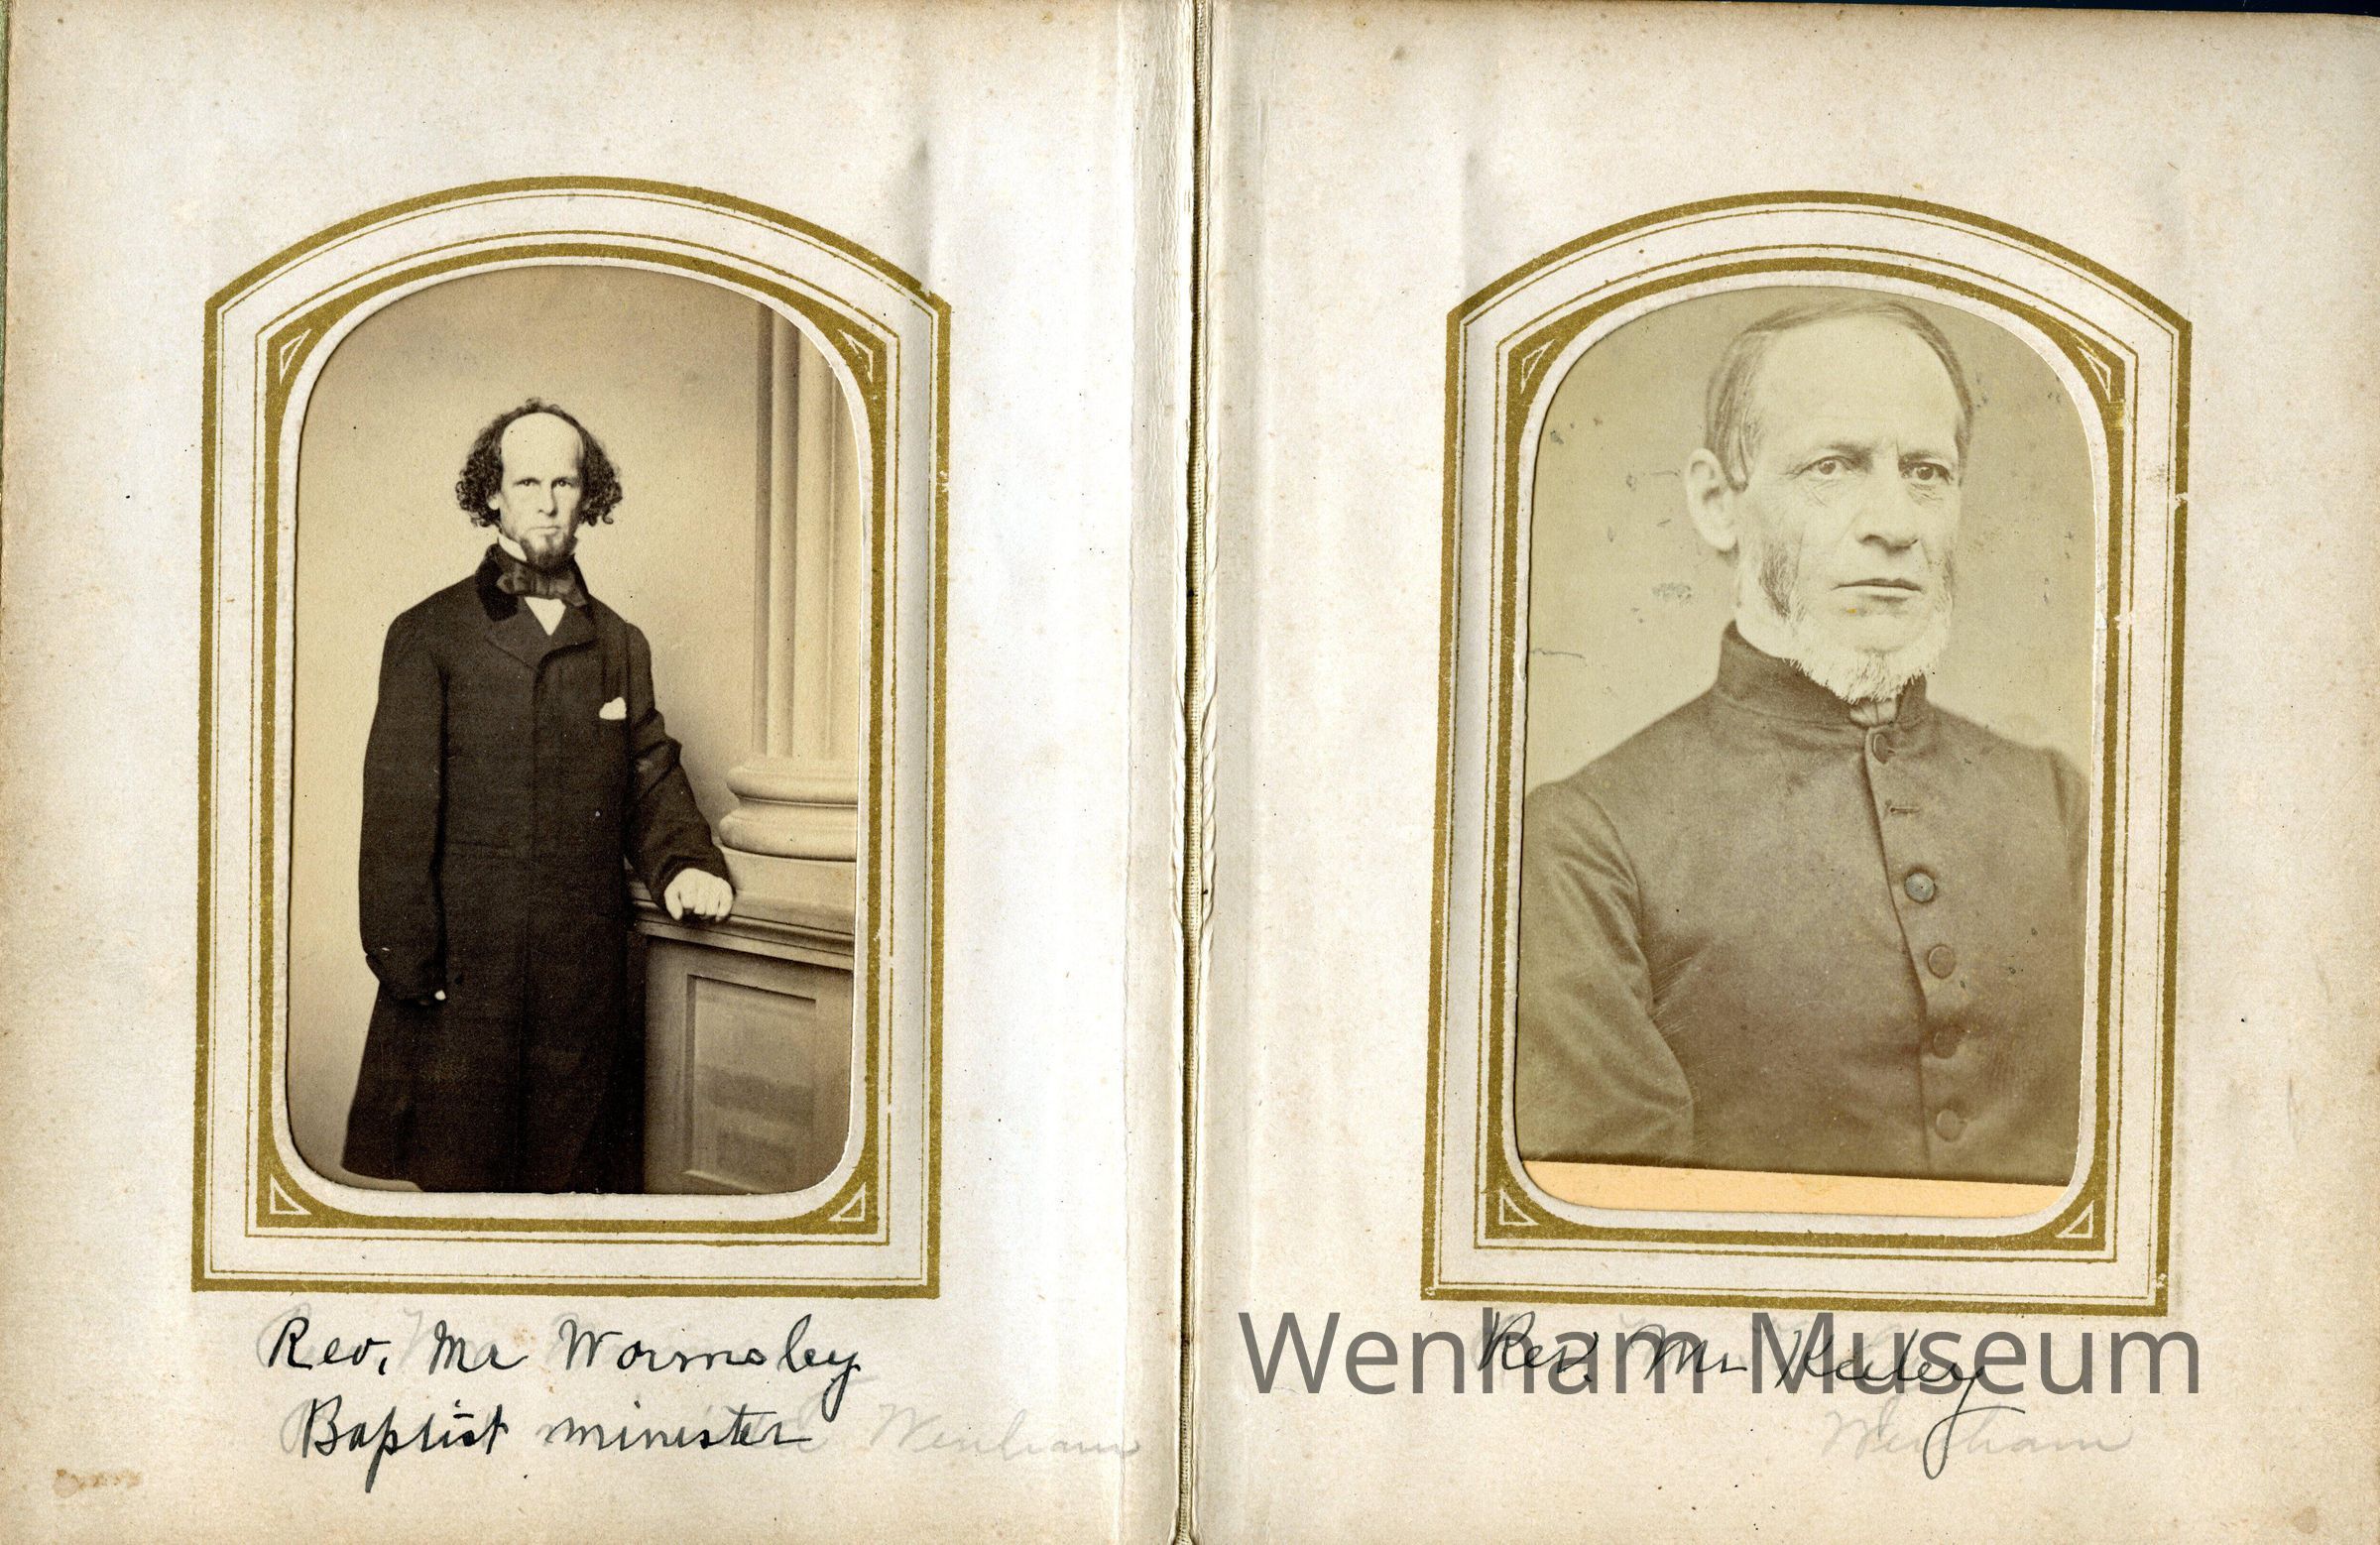 Rev. Mr Wormsley
Baptist minister Wenham
Rev. Mr Keeley
Wenham
Wenham Museum